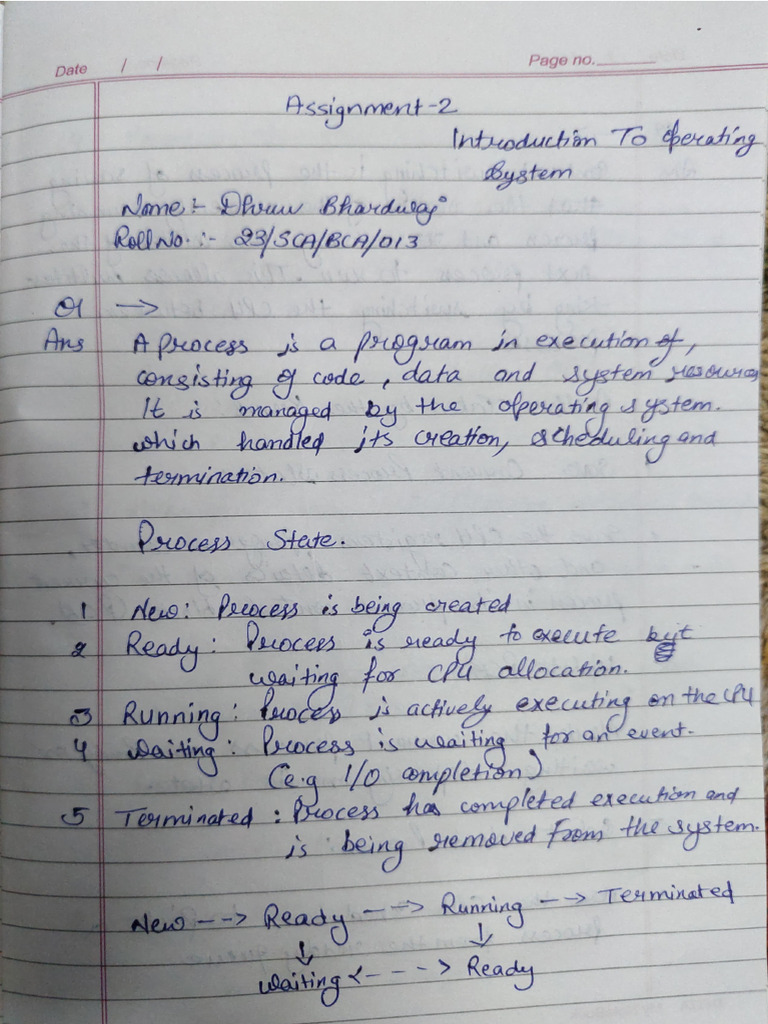 Date / /
Page no.
Assignment-2
Introduction To Operating
System
Name:- Dhruv Bhardwaj
Roll No. :- 23/SCA/BCA/013
Q1 →
Ans A process is a program in execution of,
consisting of code, data and system resources
It is managed by the operating system.
which handled its creation, scheduling and
termination.
Process State.
1 New: Process is being created
2 Ready: Process is ready to execute but
waiting for CPU allocation.
3 Running: Process is actively executing on the CPU
4 Waiting: Process is waiting for an event.
(e.g I/O completion)
5 Terminated: Process has completed execution and
is being removed from the system.
New --> Ready --> Running --> Terminated
↓ ↓
Waiting <---> Ready